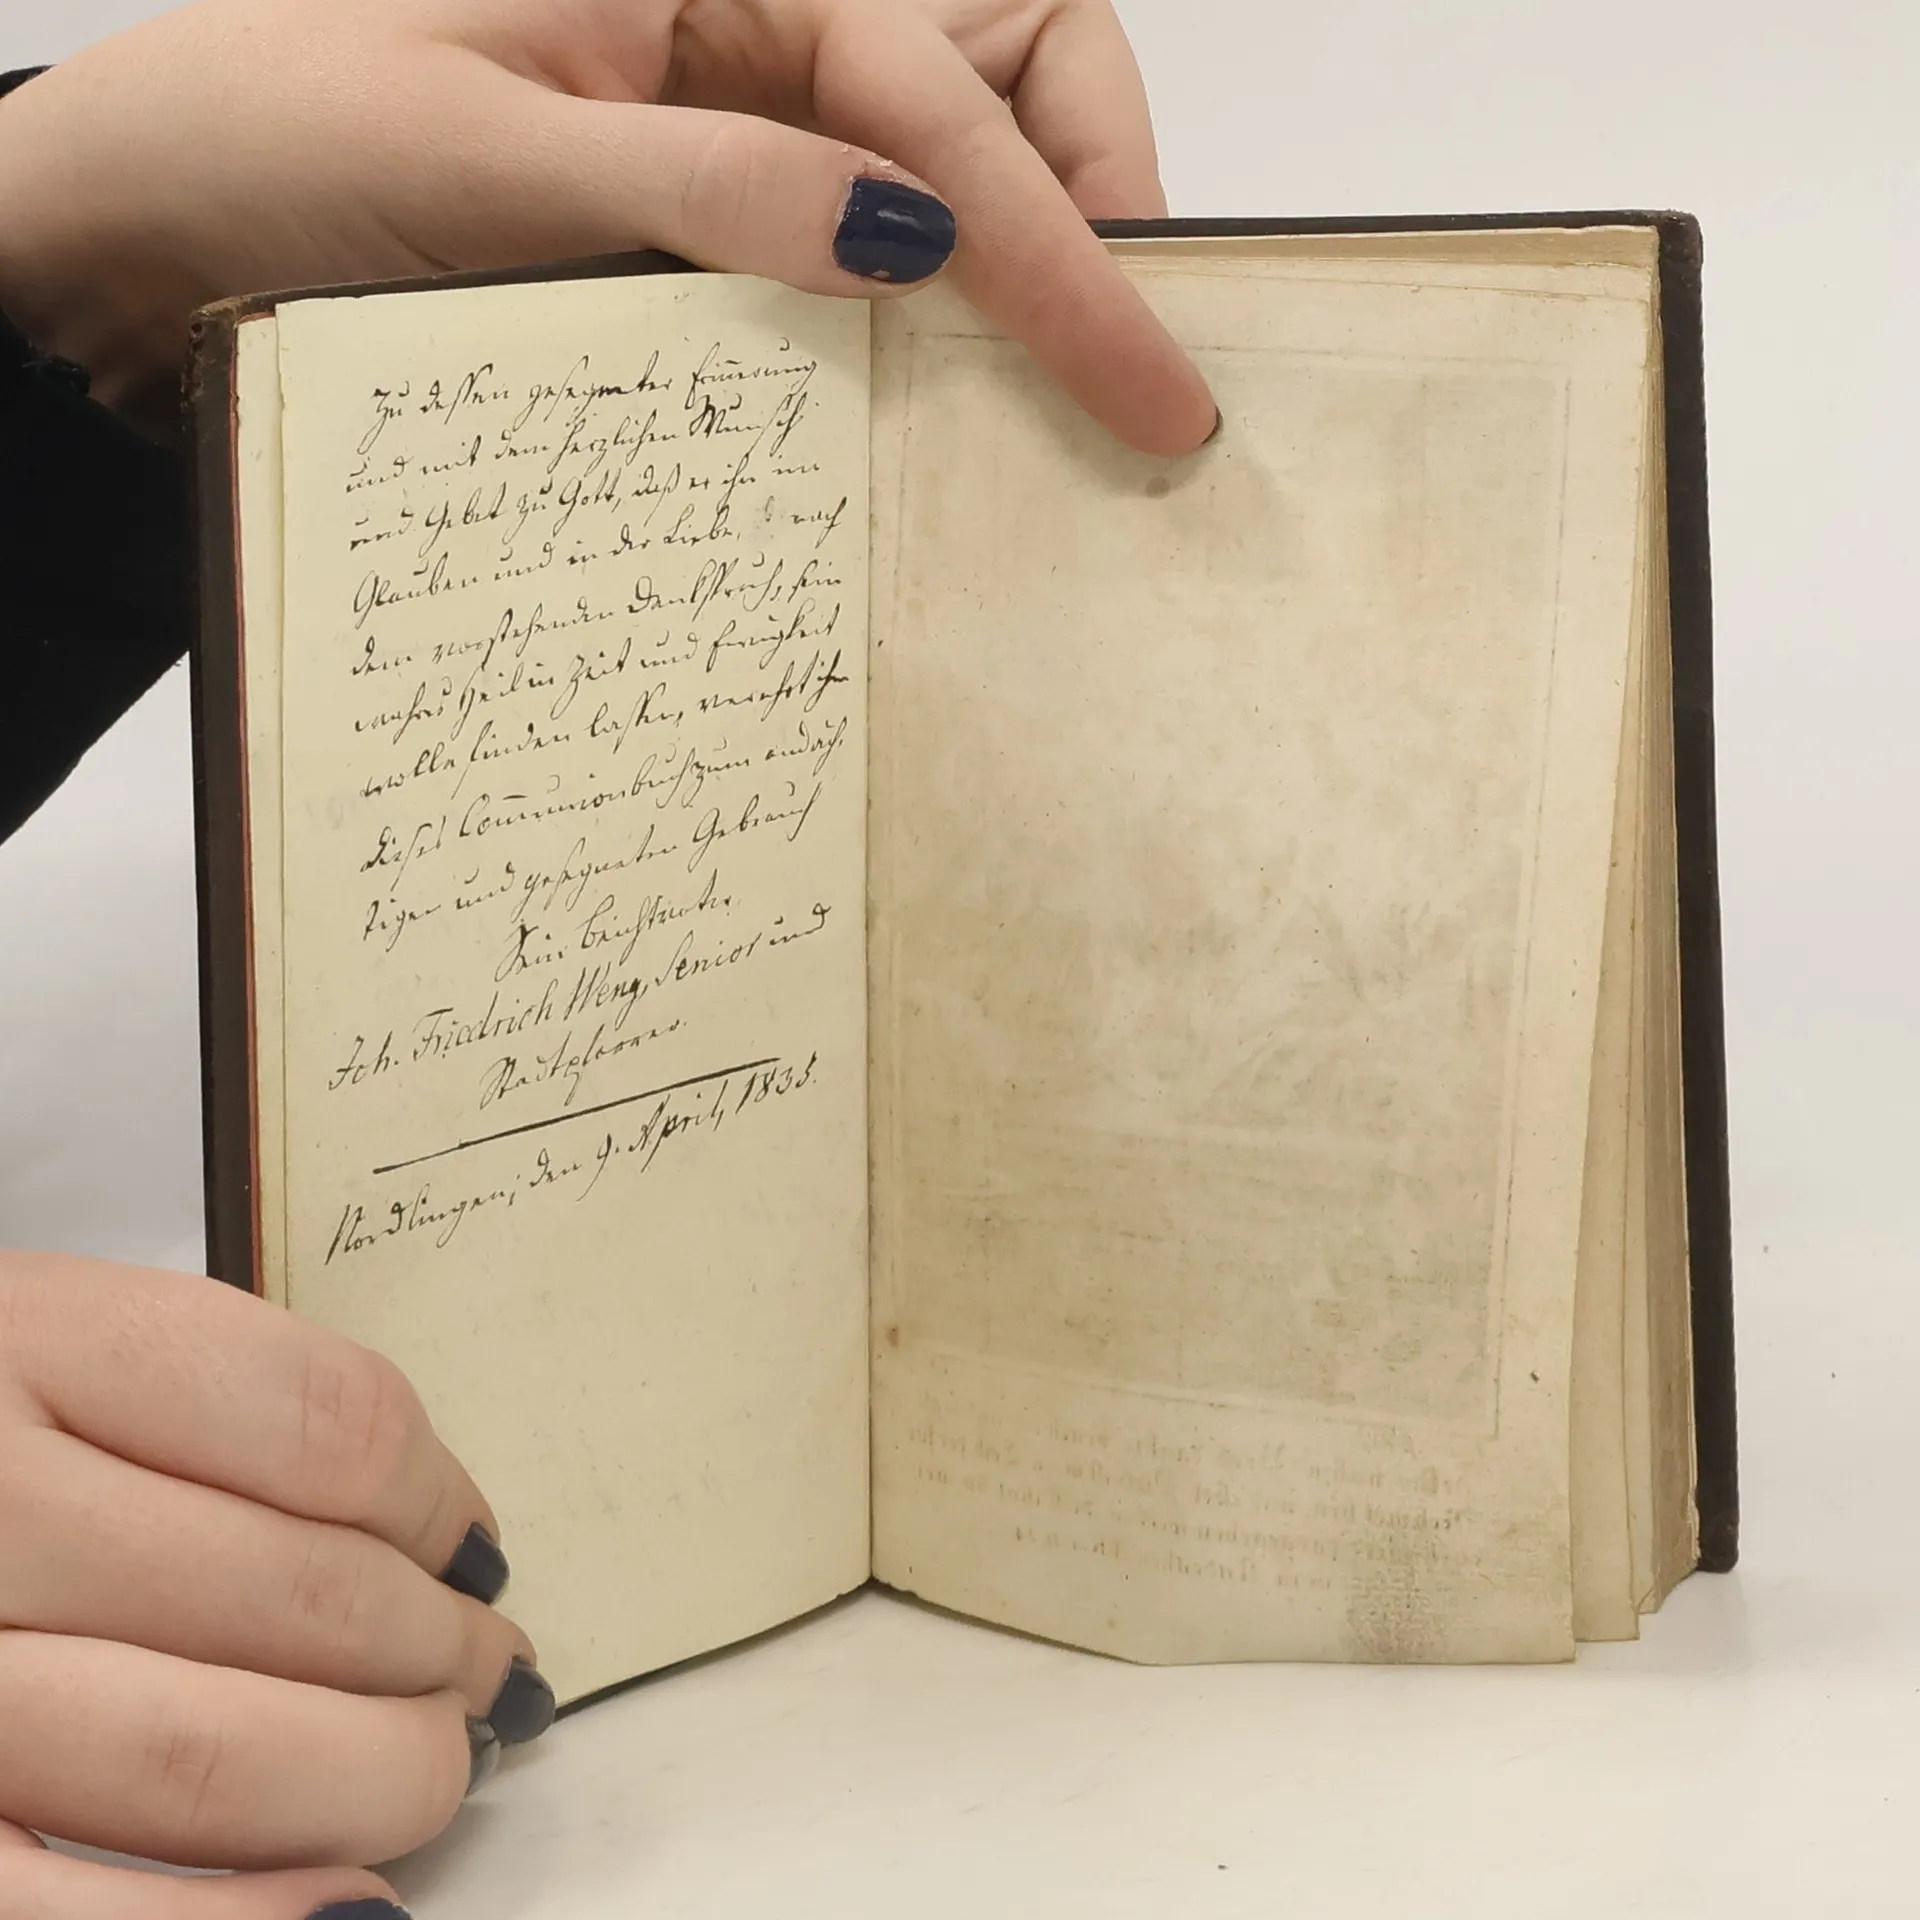 Zu dessen gesegneter Erinnerung
und mit dem herzlichen Wunsch
und Gebet zu Gott, daß er ihn im
Glauben und in der Liebe, nach
dem vorstehenden Denkspruch, sein
wahres Heil in Zeit und Ewigkeit
wolle finden lassen, verehrt ihm
dieses Com̅unionbuch zum andäch-
tigen und gesegneten Gebrauch
Sein Beichtvater
Joh. Friedrich Weng, Senior und
Stadtpfarrer.
Nördlingen, den 9. April, 1835.